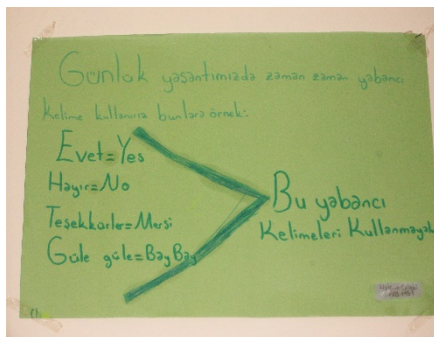 Günlük yaşantımızda zaman zaman yabancı
Kelime kullanırız bunlara örnek:
Evet=Yes
Hayır=No
Teşekkürler=Mersi
Güle güle=Bay Bay
Bu yabancı
Kelimeleri Kullanmayalı